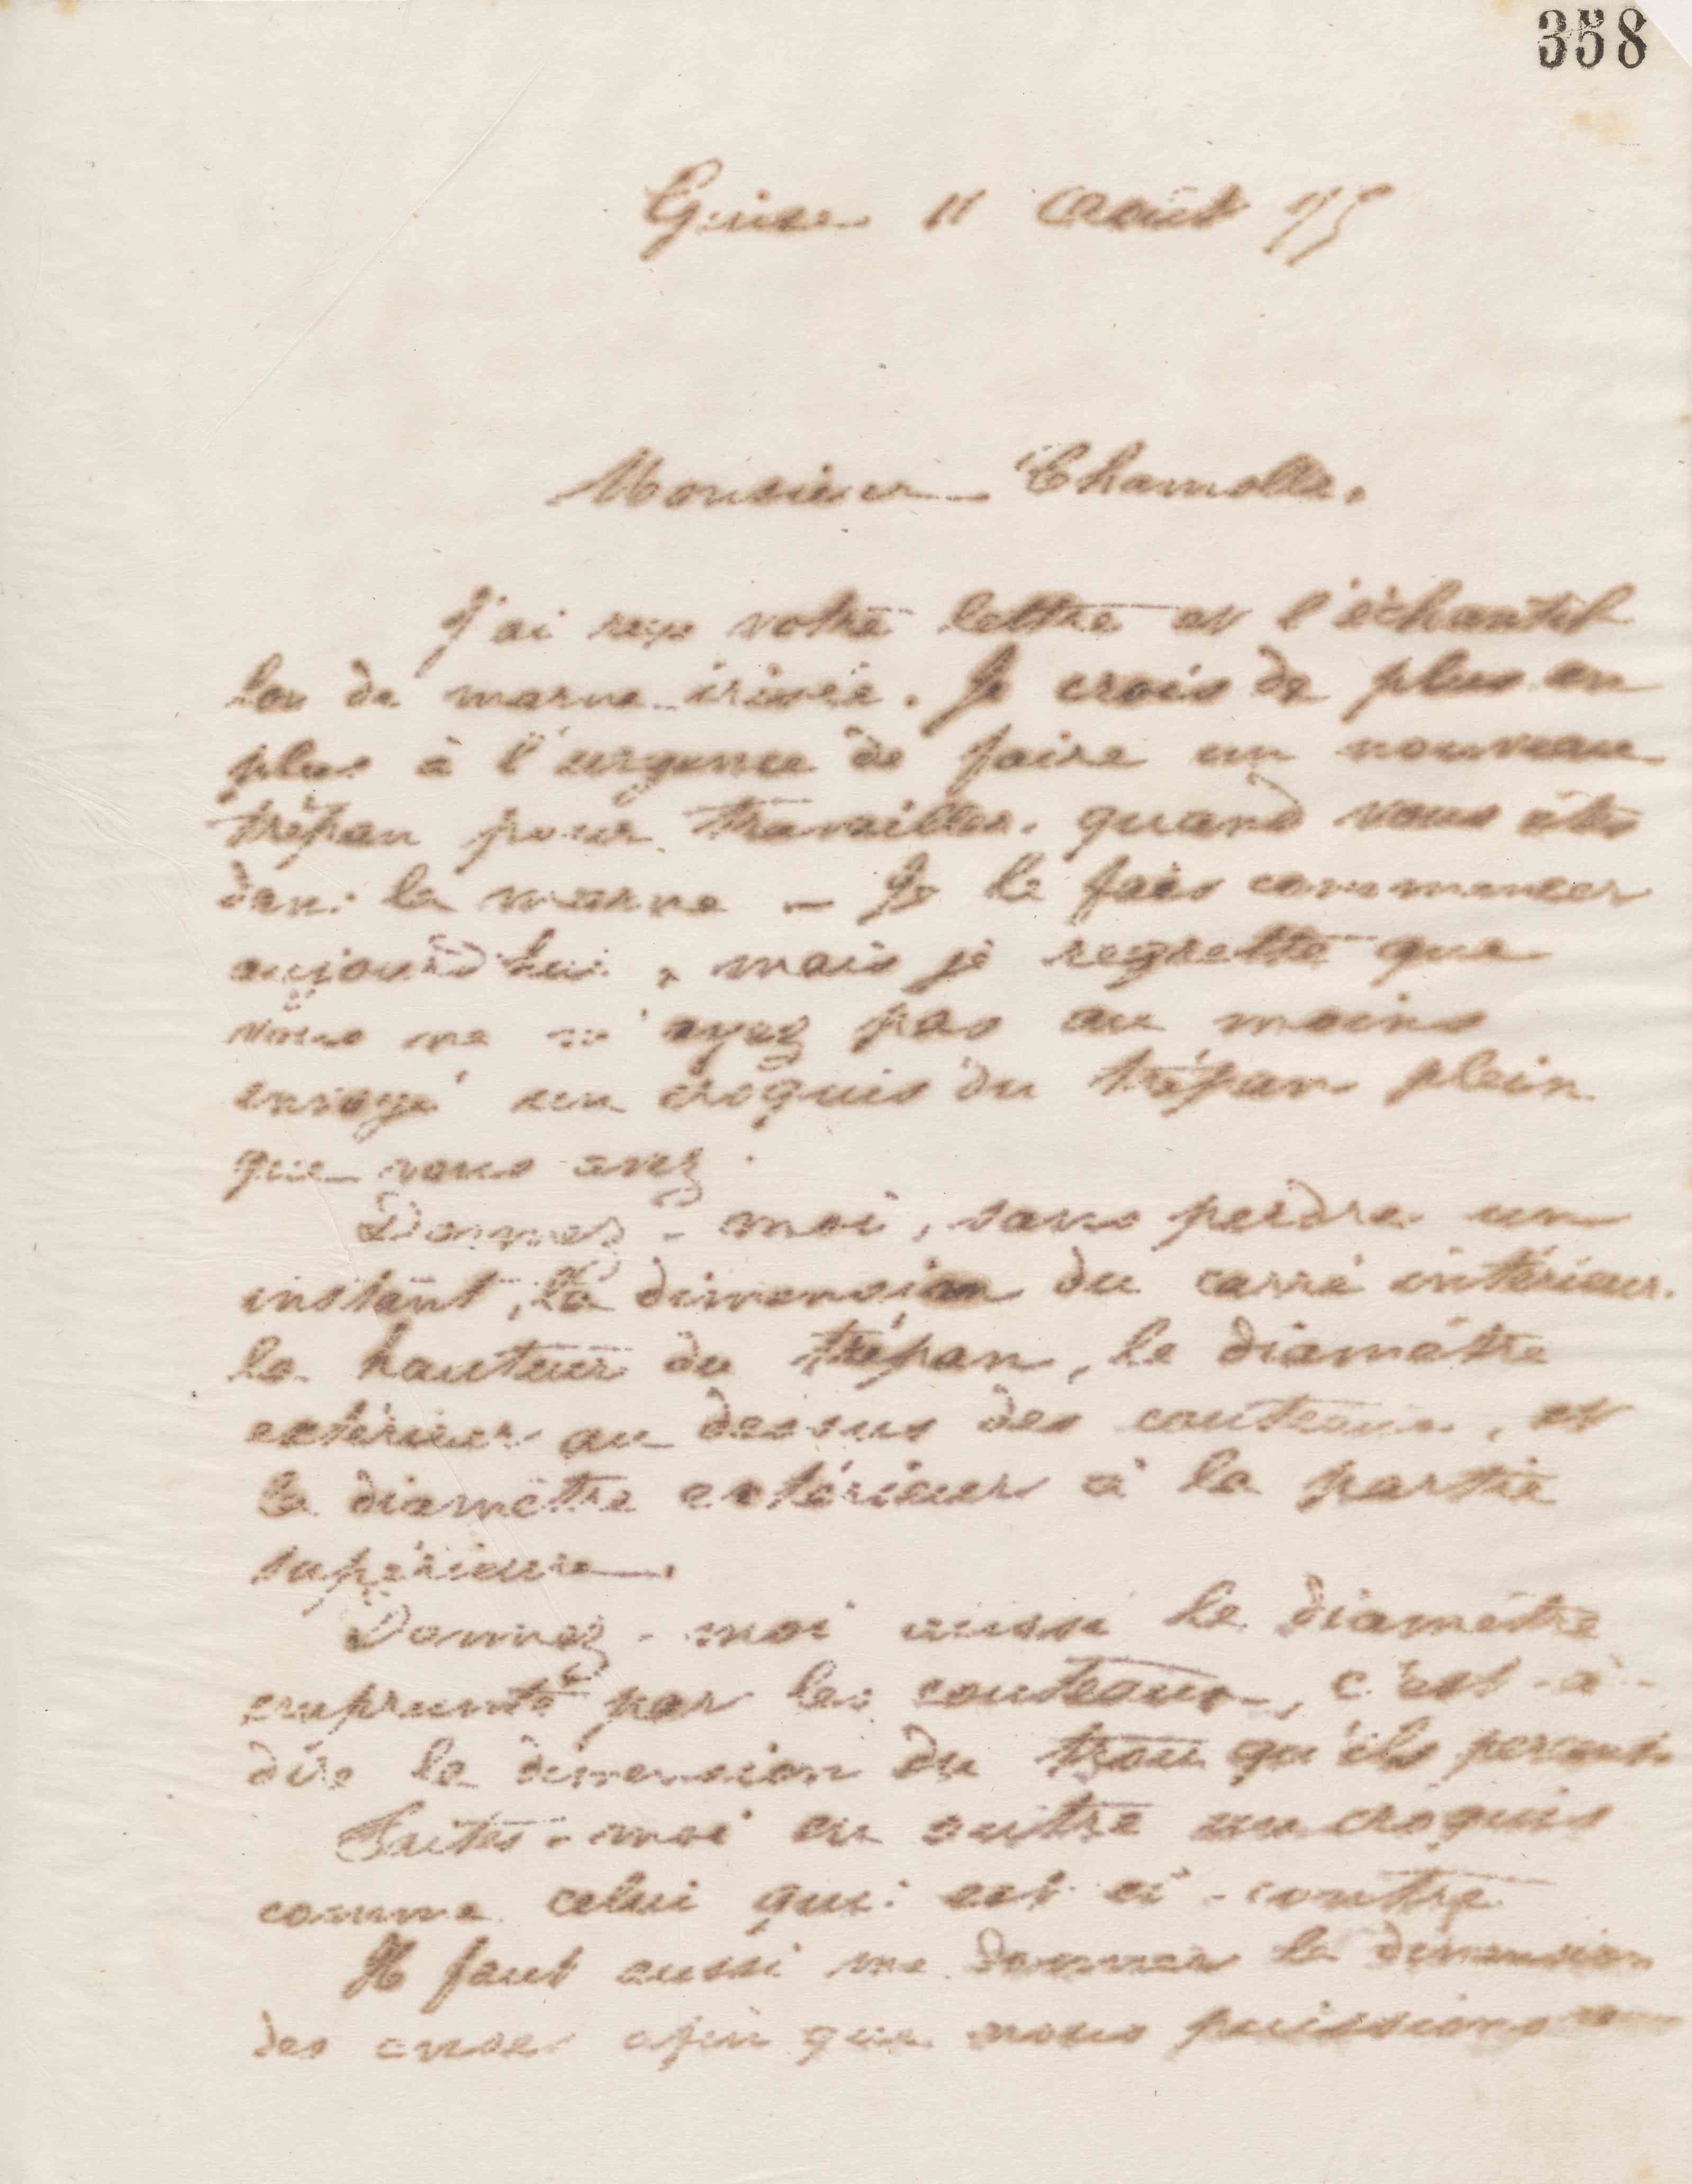 358
Guise 11 Août 75
Monsieur Chamolle.
J'ai reçu votre lettre et l'échantil
lon de marne irisée. Je crois de plus en
plus à l'urgence de faire un nouveau
trépan pour travailler quand vous êtes
dans la marne — Je le fais commencer
aujourd'hui, mais je regrette que
vous ne m'ayez pas au moins
envoyé un croquis du trépan plein
que vous avez.
Donnez-moi, sans perdre un
instant, la dimension du carré intérieur.
la hauteur du trépan, le diamètre
extérieur au dessus des couteaux, et
le diamètre extérieur à la partie
supérieure.
Donnez-moi aussi le diamètre
emprunté par les couteaux, c'est-à-
dire la dimension du trou qu'ils percent.
Faites-moi en outre un croquis
comme celui qui est ci-contre
Il faut aussi me donner la dimension
des afin que nous puissions